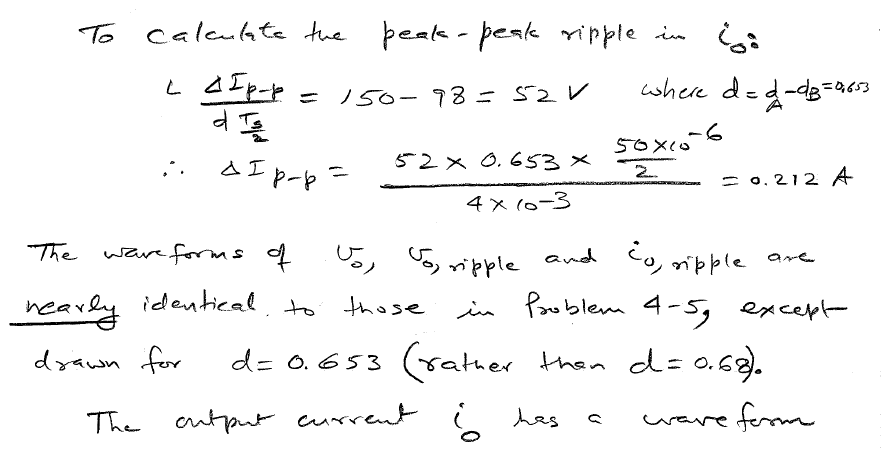 To calculate the peak-peak ripple in i₀:
L ΔI_{p-p} / (d T_s/2) = 150 - 98 = 52 V where d = d_A - d_B = 0.653
∴ ΔI_{p-p} = (52 × 0.653 × (50×10⁻⁶/2)) / (4 × 10⁻³) = 0.212 A
The waveforms of v₀, v₀,ripple and i₀,ripple are
nearly identical to those in Problem 4-5, except
drawn for d = 0.653 (rather than d = 0.68).
The output current i₀ has a waveform